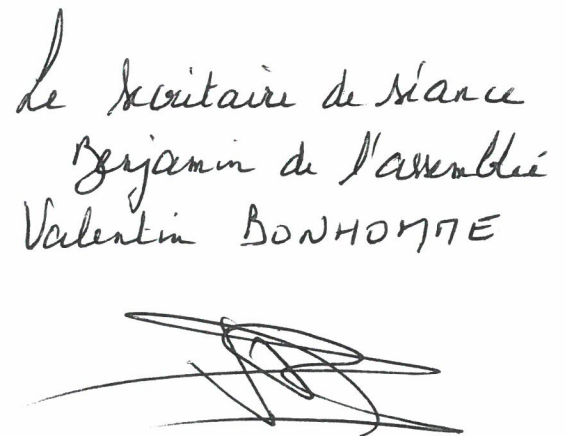 Le secrétaire de séance
Benjamin de l'assemblée
Valentin BONHOMME